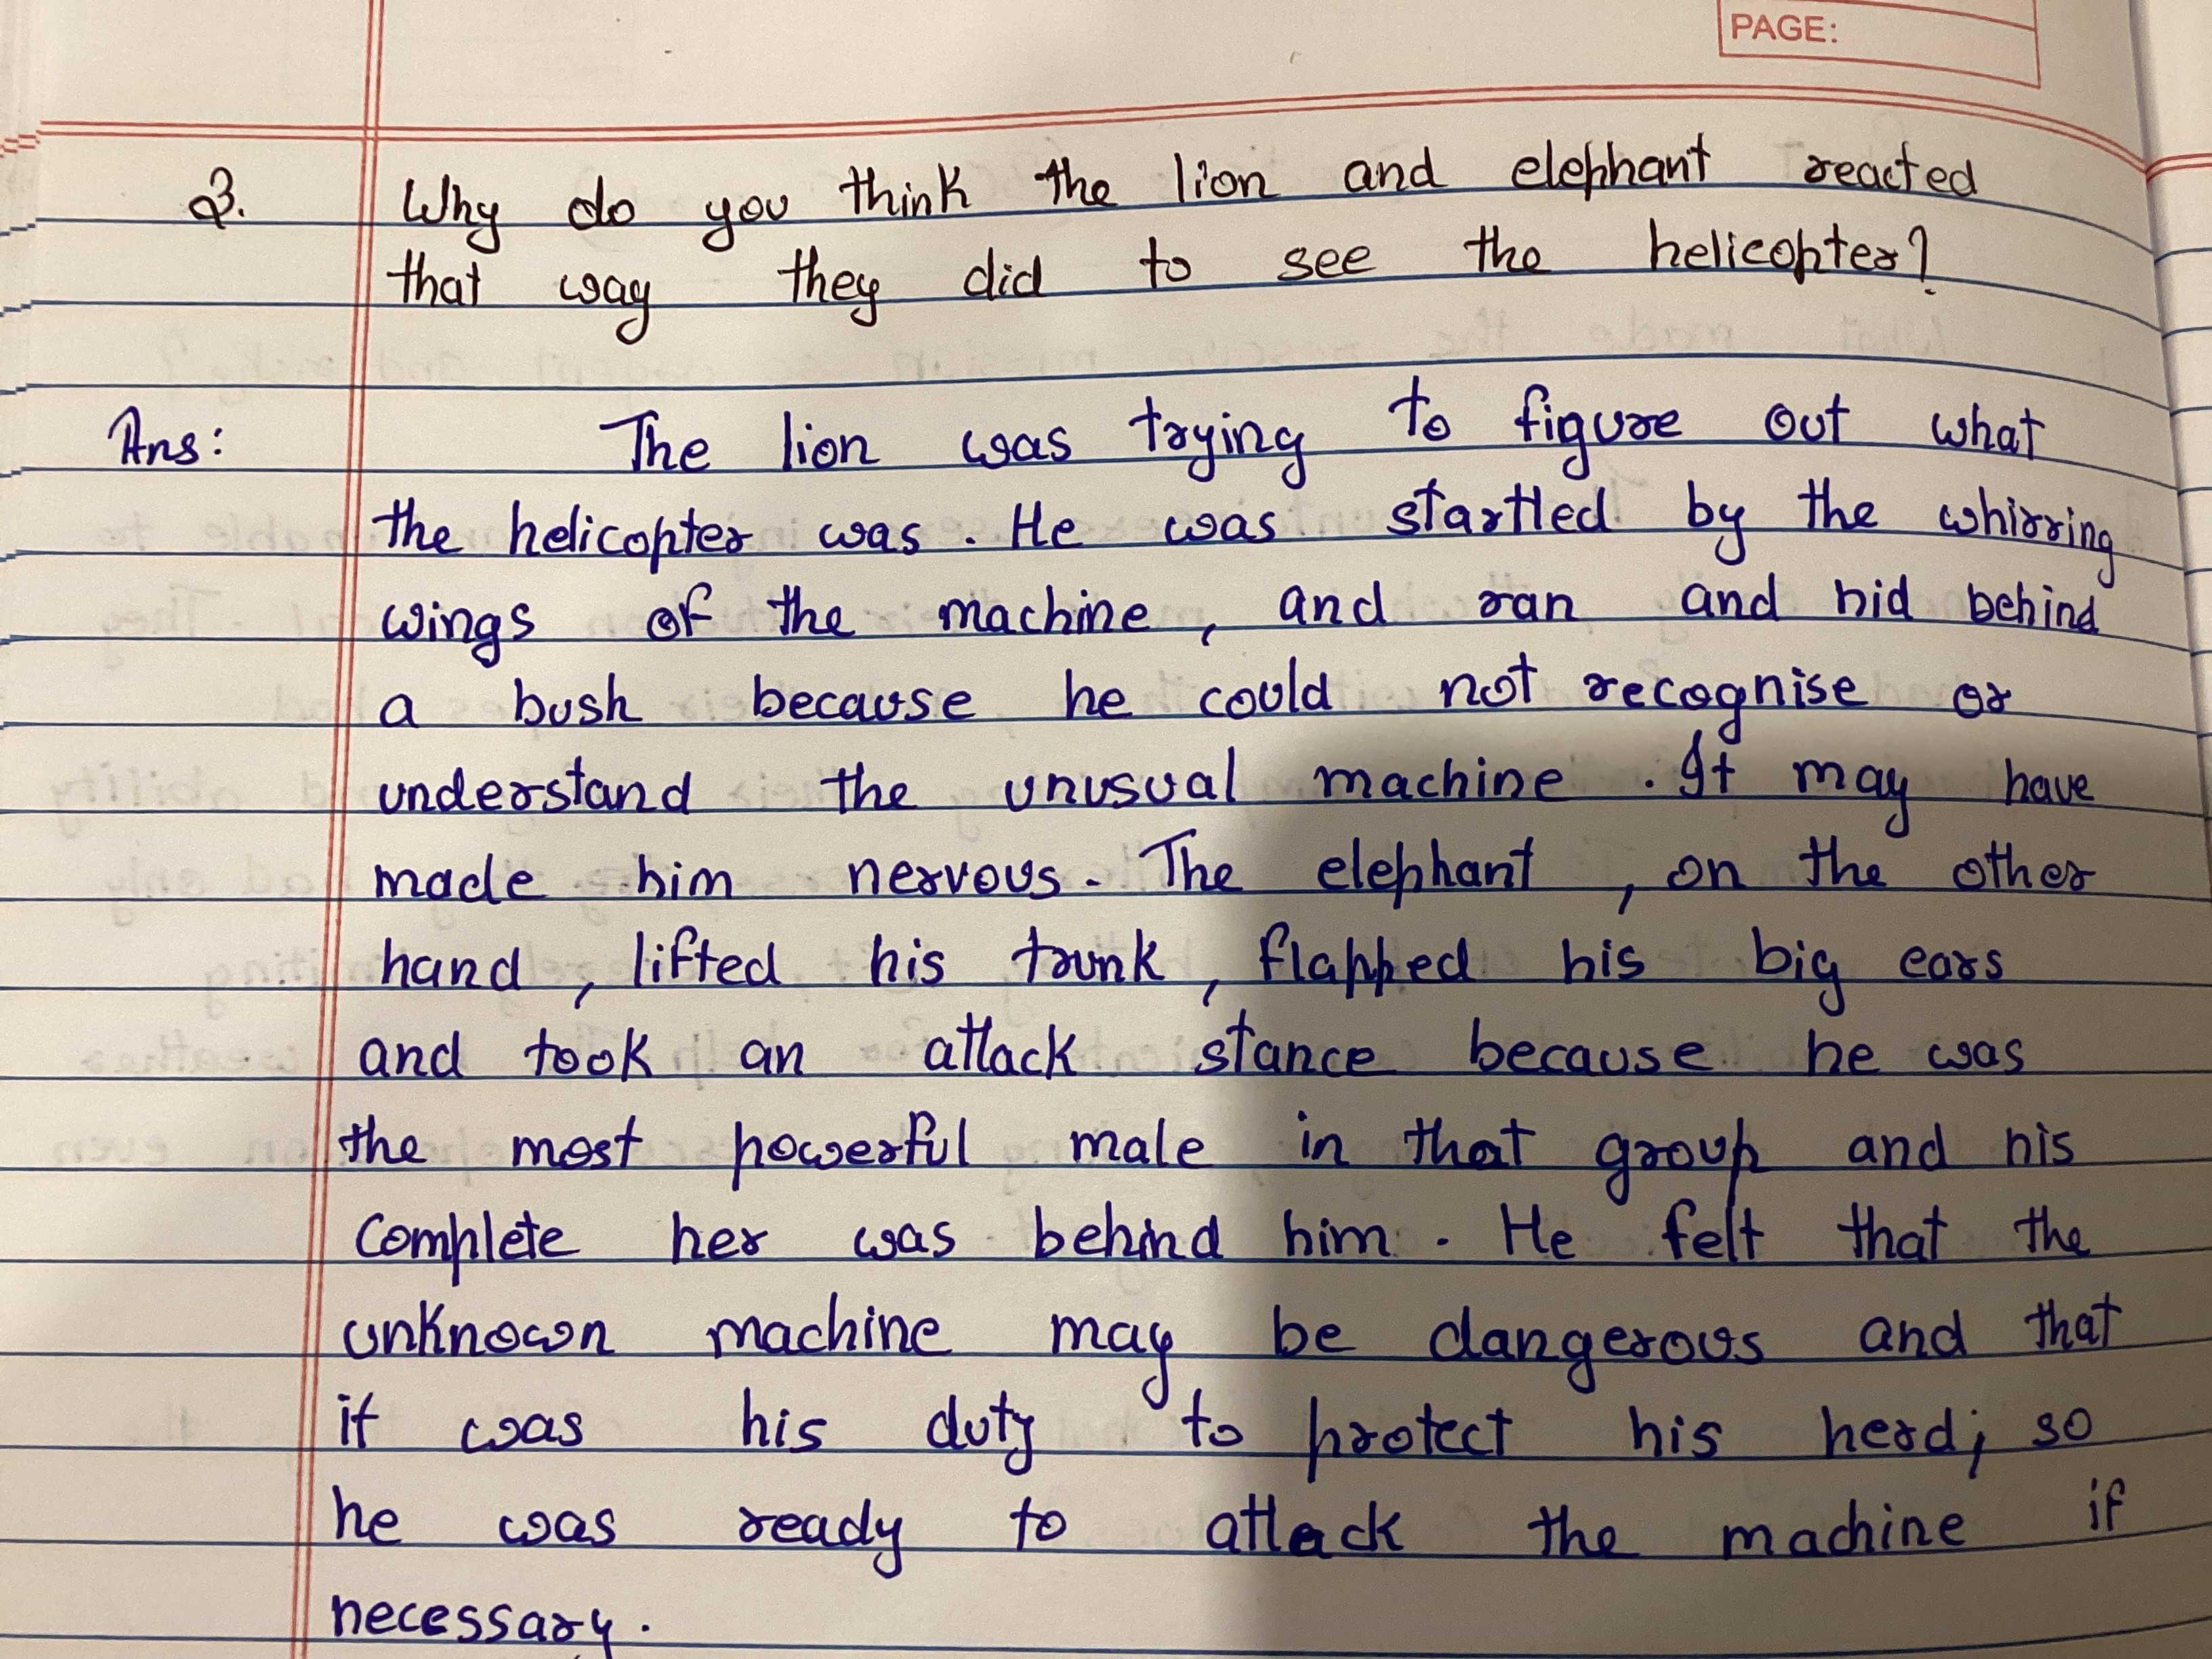 PAGE:
Q. Why do you think the lion and elephant reacted
that way they did to see the helicopter?
Ans: The lion was trying to figure out what
the helicopter was. He was startled by the whirring
wings of the machine, and ran and hid behind
a bush because he could not recognise or
understand the unusual machine. It may have
made him nervous. The elephant, on the other
hand, lifted his trunk, flapped his big ears
and took an attack stance because he was
the most powerful male in that group and his
Complete her was behind him. He felt that the
unknown machine may be dangerous and that
it was his duty to protect his herd; so
he was ready to attack the machine if
necessary.